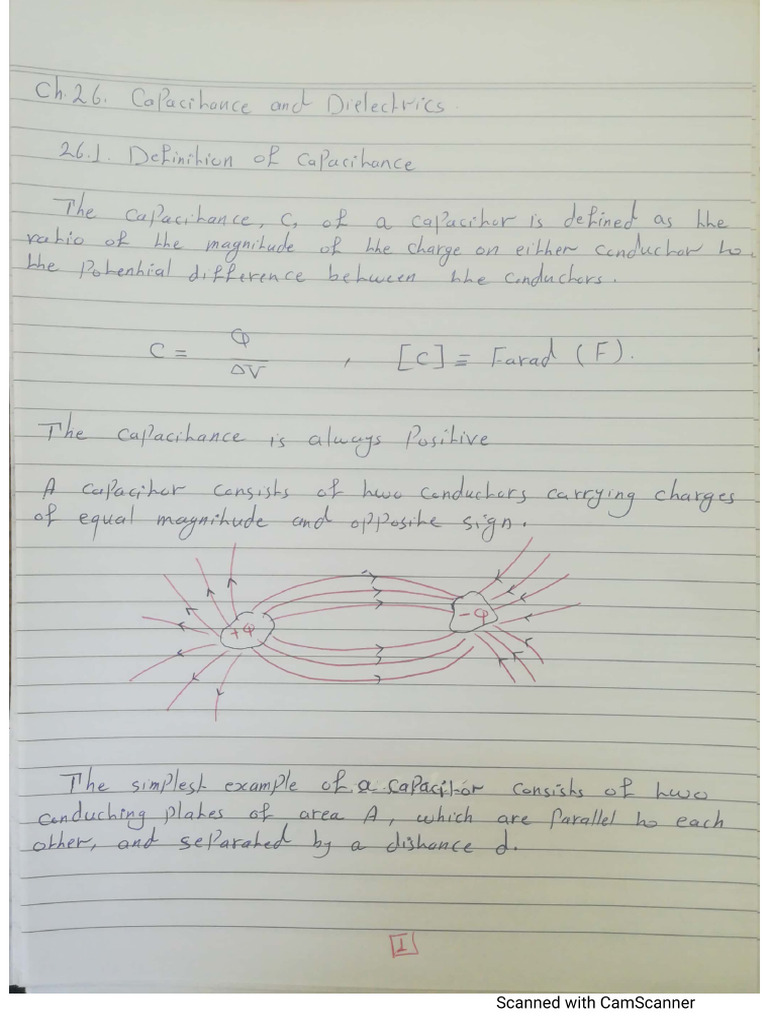 Ch.26. Capacitance and Dielectrics.
26.1. Definition of Capacitance
The capacitance, C, of a capacitor is defined as the
ratio of the magnitude of the charge on either conductor to
the potential difference between the conductors.
C = Q / ΔV , [C] ≡ Farad (F).
The capacitance is always positive
A capacitor consists of two conductors carrying charges
of equal magnitude and opposite sign.
+Q -Q
The simplest example of a capacitor consists of two
conducting plates of area A, which are parallel to each
other, and separated by a distance d.
1
Scanned with CamScanner